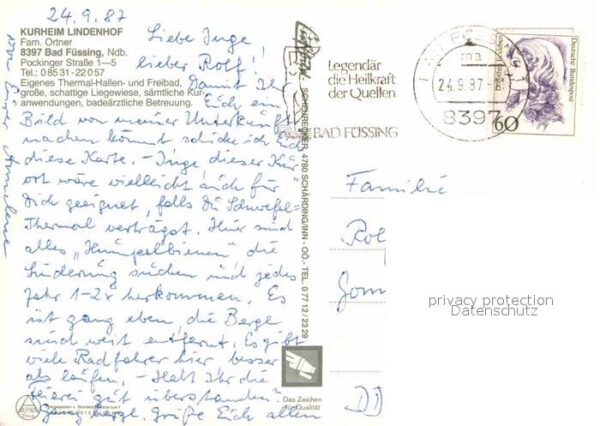 24.9.87
KURHEIM LINDENHOF
Fam. Ortner
8397 Bad Füssing, Ndb.
Pockinger Straße 1—5
Tel.: 08531-22057
Eigenes Thermal-Hallen- und Freibad,
große, schattige Liegewiese, sämtliche Kur-
anwendungen, badeärztliche Betreuung.
Liebe Inge,
lieber Rolf!
Damit Ihr
Euch ein
Bild von meiner Unterkunft
machen könnt schicke ich Euch
diese Karte. - Inge, dieser Kur
ort wäre vielleicht auch für
Dich geeignet, falls Du Schwefel-
Thermal verträgst. Hier sind
alles „Humpelbienen" die
Linderung suchen und jedes
Jahr 1-2x herkommen. Es
ist ganz eben die Berge
sind weit entfernt. Es gibt
viele Radfahrer hier besser
als laufen. - Habt Ihr die
Feierei gut überstanden?
Ganz herzl. Grüße Euch allen
von Eurer
SCHÄRDING/INN - OÖ - TEL. 0 77 12 / 23 29
4780
Das Zeichen
für Qualität
Legendär
die Heilkraft
der Quellen.
BAD FÜSSING
24.9.87
8397
Deutsche Bundespost
60
Familie
Rolf
privacy protection
Datenschutz